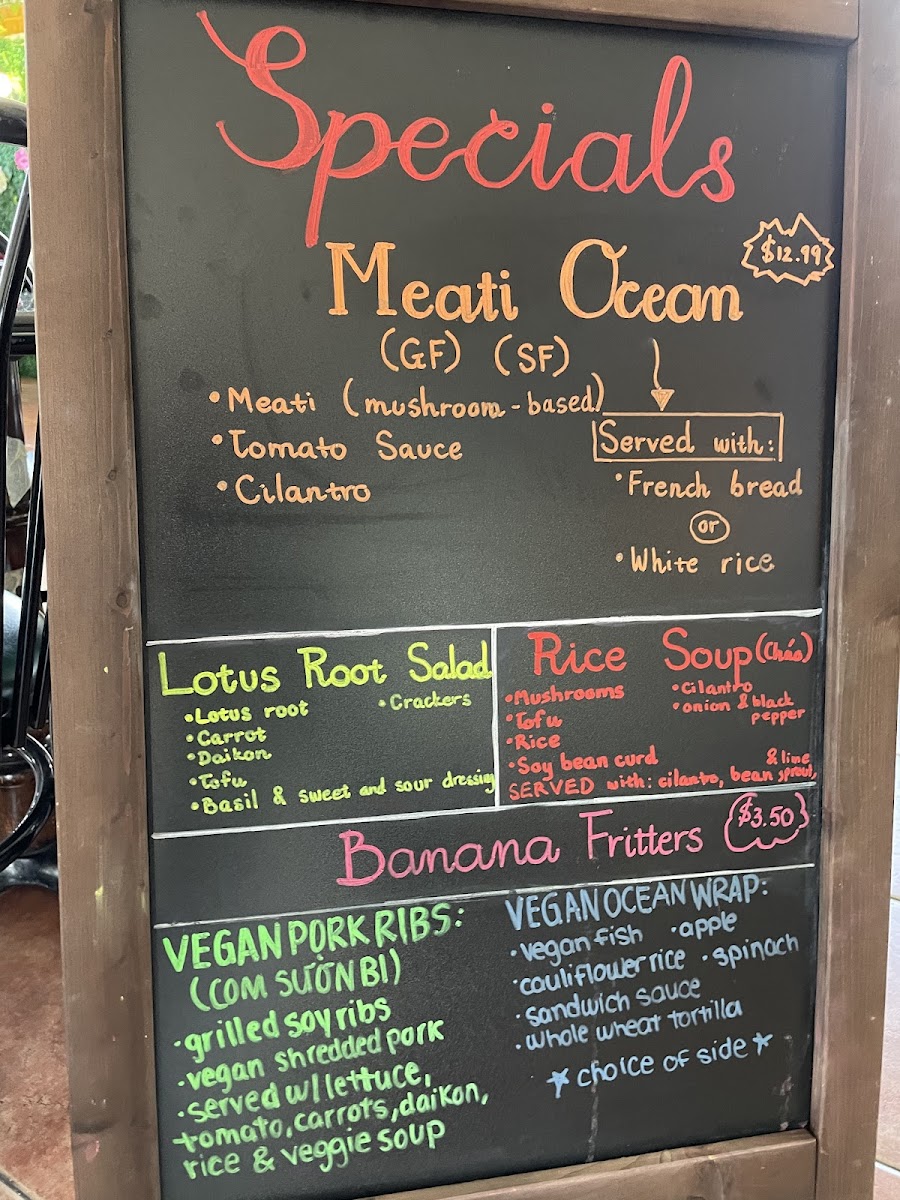 Specials
Meati Ocean
$12.99
(GF) (SF)
• Meati (mushroom-based)
• Tomato Sauce
• Cilantro
Served with:
• French bread
or
• White rice
Lotus Root Salad
• Lotus root
• Carrot
• Daikon
• Tofu
• Basil & sweet and sour dressing
• Crackers
Rice Soup (Cháo)
• Mushrooms
• Tofu
• Rice
• Soy bean curd
• Cilantro
• onion & black
pepper
SERVED with: cilantro, bean sprout,
& lime
Banana Fritters
$3.50
VEGAN PORK RIBS:
(COM SƯỢN BI)
• grilled soy ribs
• vegan shredded pork
• served w/ lettuce,
tomato, carrots, daikon,
rice & veggie soup
VEGAN OCEAN WRAP:
• vegan fish • apple
• cauliflower rice • spinach
• sandwich sauce
• whole wheat tortilla
★ choice of side ★